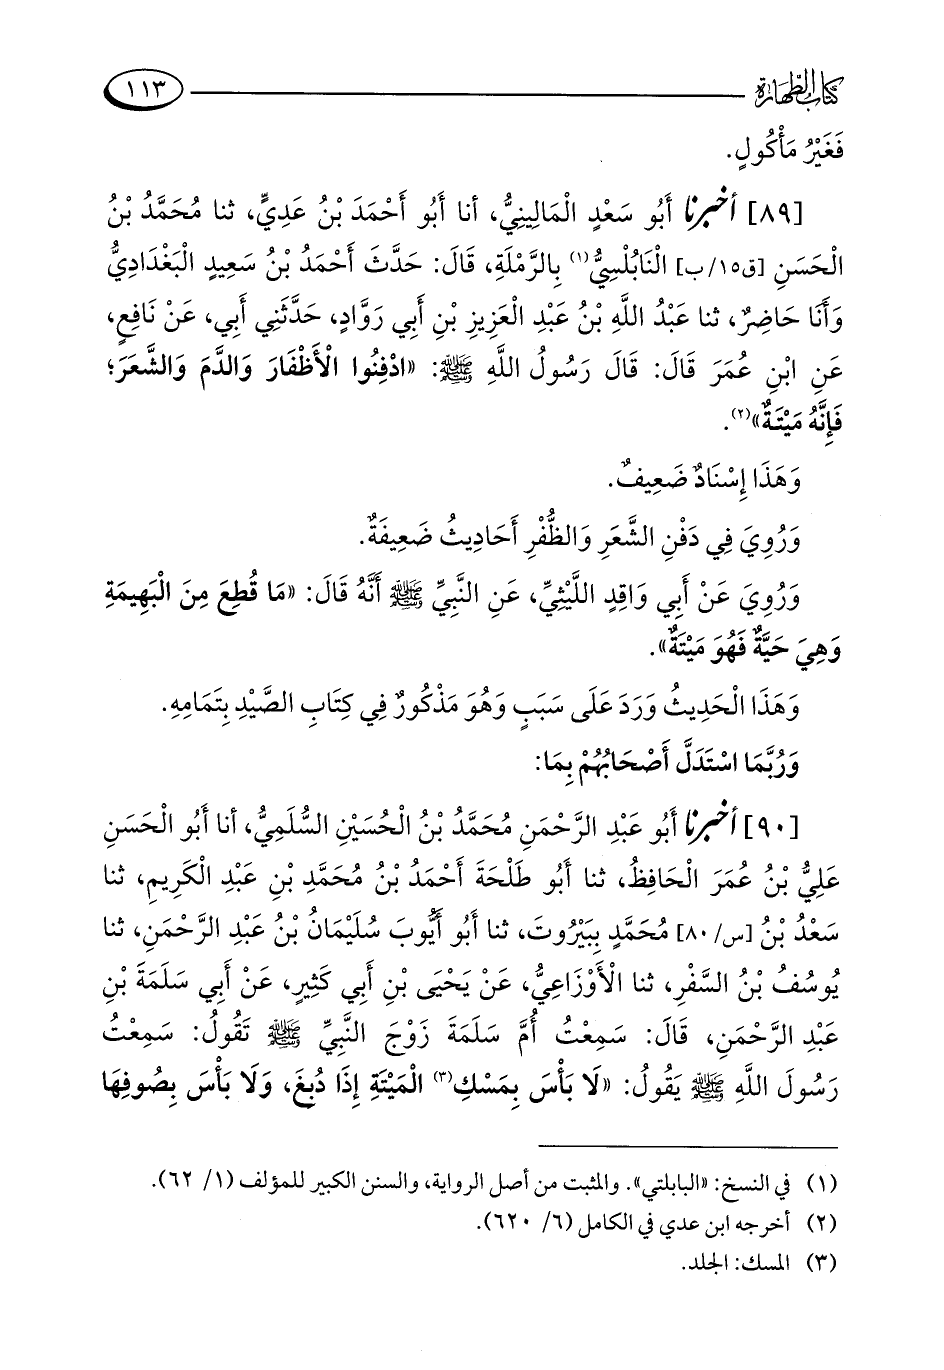 كتاب الطهارة ١١٣
فَغَيْرُ مَأْكُولٍ.
[٨٩] أخبرنا أَبُو سَعْدٍ الْمَالِينِيُّ، أنا أَبُو أَحْمَدَ بْنُ عَدِيٍّ، ثنا مُحَمَّدُ بْنُ
الْحَسَنِ [ق١٥/ب] الْنَابُلْسِيُّ(١) بِالرَّمْلَةِ، قَالَ: حَدَّثَ أَحْمَدُ بْنُ سَعِيدٍ الْبَغْدَادِيُّ
وَأَنَا حَاضِرٌ، ثنا عَبْدُ اللَّهِ بْنُ عَبْدِ الْعَزِيزِ بْنِ أَبِي رَوَّادٍ، حَدَّثَنِي أَبِي، عَنْ نَافِعٍ،
عَنِ ابْنِ عُمَرَ قَالَ: قَالَ رَسُولُ اللَّهِ ﷺ: «ادْفِنُوا الْأَظْفَارَ وَالدَّمَ وَالشَّعَرَ؛
فَإِنَّهُ مَيْتَةٌ»(٢).
وَهَذَا إِسْنَادٌ ضَعِيفٌ.
وَرُوِيَ فِي دَفْنِ الشَّعَرِ وَالظُّفْرِ أَحَادِيثُ ضَعِيفَةٌ.
وَرُوِيَ عَنْ أَبِي وَاقِدٍ اللَّيْثِيِّ، عَنِ النَّبِيِّ ﷺ أَنَّهُ قَالَ: «مَا قُطِعَ مِنَ الْبَهِيمَةِ
وَهِيَ حَيَّةٌ فَهُوَ مَيْتَةٌ».
وَهَذَا الْحَدِيثُ وَرَدَ عَلَى سَبَبٍ وَهُوَ مَذْكُورٌ فِي كِتَابِ الصَّيْدِ بِتَمَامِهِ.
وَرُبَّمَا اسْتَدَلَّ أَصْحَابُهُمْ بِمَا:
[٩٠] أخبرنا أَبُو عَبْدِ الرَّحْمَنِ مُحَمَّدُ بْنُ الْحُسَيْنِ السُّلَمِيُّ، أنا أَبُو الْحَسَنِ
عَلِيُّ بْنُ عُمَرَ الْحَافِظُ، ثنا أَبُو طَلْحَةَ أَحْمَدُ بْنُ مُحَمَّدِ بْنِ عَبْدِ الْكَرِيمِ، ثنا
سَعْدُ بْنُ [س/٨٠] مُحَمَّدٍ بِبَيْرُوتَ، ثنا أَبُو أَيُّوبَ سُلَيْمَانُ بْنُ عَبْدِ الرَّحْمَنِ، ثنا
يُوسُفُ بْنُ السَّفْرِ، ثنا الْأَوْزَاعِيُّ، عَنْ يَحْيَى بْنِ أَبِي كَثِيرٍ، عَنْ أَبِي سَلَمَةَ بْنِ
عَبْدِ الرَّحْمَنِ، قَالَ: سَمِعْتُ أُمَّ سَلَمَةَ زَوْجَ النَّبِيِّ ﷺ تَقُولُ: سَمِعْتُ
رَسُولَ اللَّهِ ﷺ يَقُولُ: «لَا بَأْسَ بِمَسْكِ(٣) الْمَيْتَةِ إِذَا دُبِغَ، وَلَا بَأْسَ بِصُوفِهَا
(١) في النسخ: «البابلتي». والمثبت من أصل الرواية، والسنن الكبير للمؤلف (١/ ٦٢).
(٢) أخرجه ابن عدي في الكامل (٦/ ٦٢٠).
(٣) المسك: الجلد.